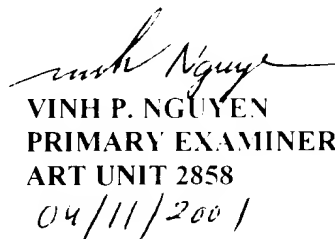 Vinh Nguye
VINH P. NGUYEN
PRIMARY EXAMINER
ART UNIT 2858
04/11/2001